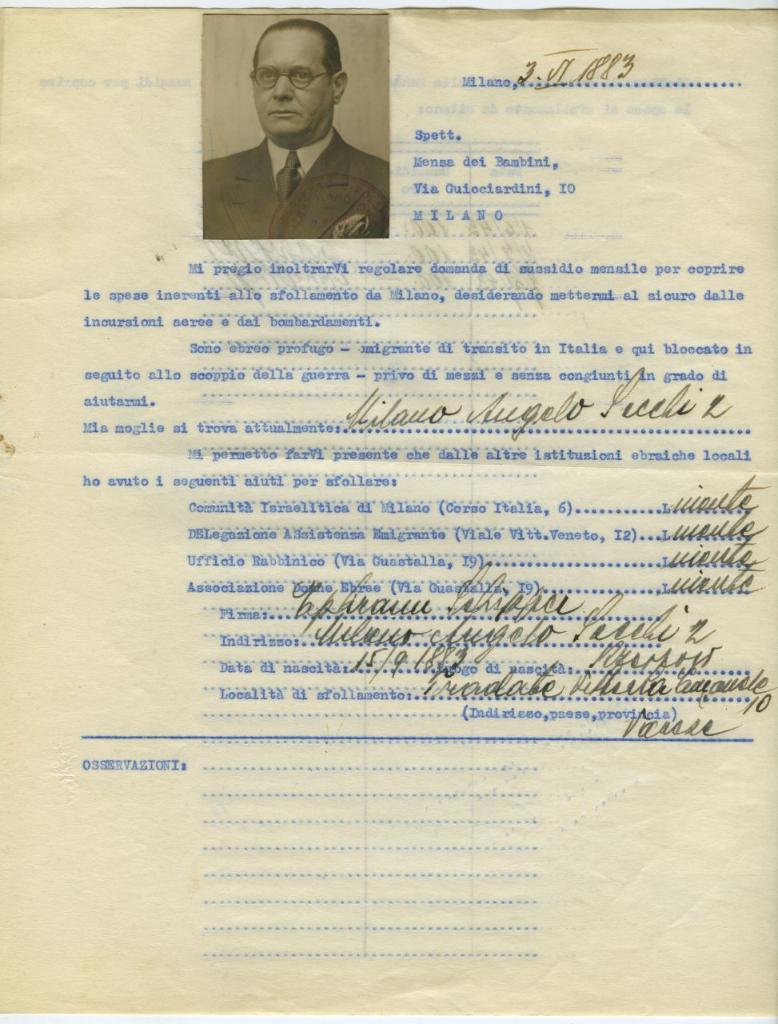 Milano, 3. VI 1883
Spett.
Mensa dei Bambini,
Via Guicciardini, 10
MILANO
Mi pregio inoltrarVi regolare domanda di sussidio mensile per coprire
le spese inerenti allo sfollamento da Milano, desiderando mettermi al sicuro dalle
incursioni aeree e dai bombardamenti.
Sono ebreo profugo - emigrante di transito in Italia e qui bloccato in
seguito allo scoppio della guerra - privo di mezzi e senza congiunti in grado di
aiutarmi.
Mia moglie si trova attualmente: Milano Angelo Secchi 2
Mi permetto farVi presente che dalle altre istituzioni ebraiche locali
ho avuto i seguenti aiuti per sfollare:
Comunità Israelitica di Milano (Corso Italia, 6)............L niente
DELegazione ASsistenza Emigrante (Viale Vitt.Veneto, 12)...L niente
Ufficio Rabbinico (Via Guastalla, 19)......................L niente
Associazione Donne Ebree (Via Guastalla, 19)...............L niente
Firma:
Indirizzo: Milano Angelo Secchi 2
Data di nascità: 15/9 1883 Luogo di nascità: Rzeszow
Località di sfollamento: Tradate 10
(Indirizzo,paese,provincia) Varese
OSSERVAZIONI: